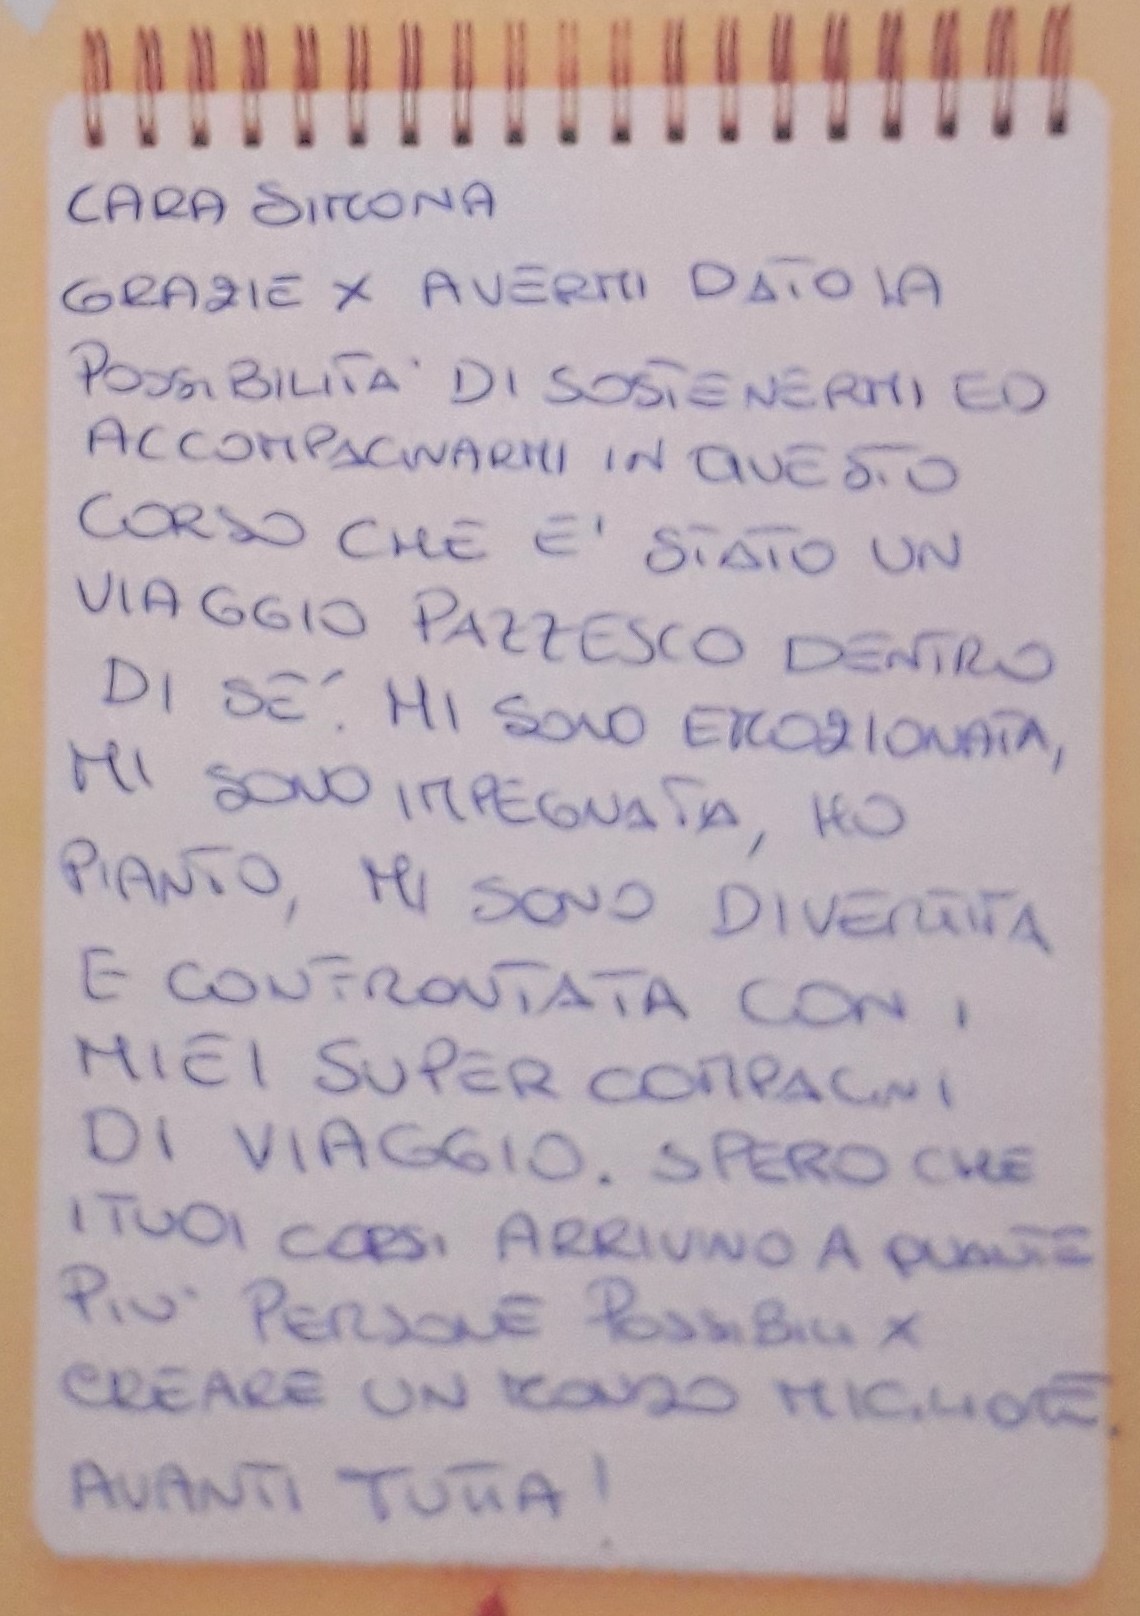 CARA SIMONA
GRAZIE X AVERMI DATO LA
POSSIBILITA' DI SOSTENERMI ED
ACCOMPAGNARMI IN QUESTO
CORSO CHE E' STATO UN
VIAGGIO PAZZESCO DENTRO
DI SE'. MI SONO EMOZIONATA,
MI SONO IMPEGNATA, HO
PIANTO, MI SONO DIVERTITA
E CONFRONTATA CON I
MIEI SUPER COMPAGNI
DI VIAGGIO. SPERO CHE
I TUOI CORSI ARRIVINO A QUANTE
PIU' PERSONE POSSIBILI X
CREARE UN MONDO MIGLIORE.
AVANTI TUTTA!